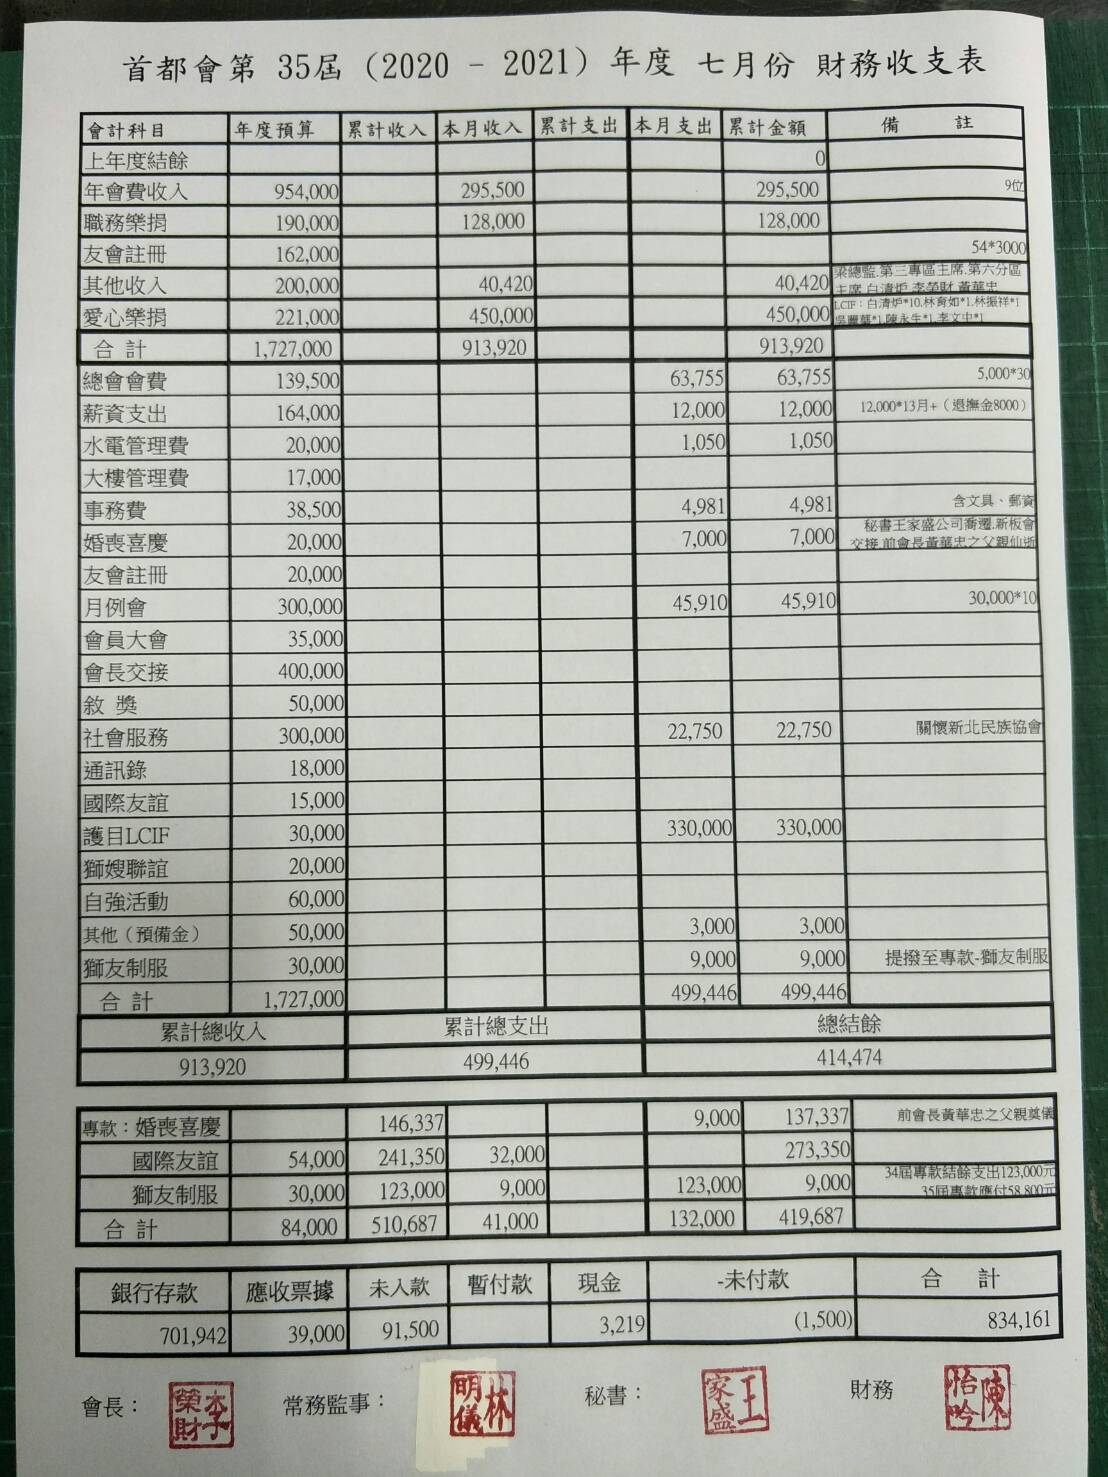 首都會第 35屆（2020 - 2021）年度 七月份 財務收支表
會計科目 年度預算 累計收入 本月收入 累計支出 本月支出 累計金額 備 註
上年度結餘 0
年會費收入 954,000 295,500 295,500 9位
職務樂捐 190,000 128,000 128,000
友會註冊 162,000 54*3000
其他收入 200,000 40,420 40,420 梁總監.第三專區主席.第六分區
主席.白清炉.李榮財.黃華忠
愛心樂捐 221,000 450,000 450,000 LCIF：白清炉*10.林育如*1.林振祥*1
吳麗華*1.陳永生*1.李文中*1
合 計 1,727,000 913,920 913,920
總會會費 139,500 63,755 63,755 5,000*30
薪資支出 164,000 12,000 12,000 12,000*13月+（退撫金8000）
水電管理費 20,000 1,050 1,050
大樓管理費 17,000
事務費 38,500 4,981 4,981 含文具、郵資
婚喪喜慶 20,000 7,000 7,000 秘書王家盛公司喬遷.新板會
交接.前會長黃華忠之父親仙逝
友會註冊 20,000
月例會 300,000 45,910 45,910 30,000*10
會員大會 35,000
會長交接 400,000
敘 獎 50,000
社會服務 300,000 22,750 22,750 關懷新北民族協會
通訊錄 18,000
國際友誼 15,000
護目LCIF 30,000 330,000 330,000
獅嫂聯誼 20,000
自強活動 60,000
其他（預備金） 50,000 3,000 3,000
獅友制服 30,000 9,000 9,000 提撥至專款-獅友制服
合 計 1,727,000 499,446 499,446
累計總收入 累計總支出 總結餘
913,920 499,446 414,474
專款：婚喪喜慶 146,337 9,000 137,337 前會長黃華忠之父親奠儀
國際友誼 54,000 241,350 32,000 273,350
獅友制服 30,000 123,000 9,000 123,000 9,000 34屆專款結餘支出123,000元
35屆專款應付58,800元
合 計 84,000 510,687 41,000 132,000 419,687
銀行存款 應收票據 未入款 暫付款 現金 -未付款 合 計
701,942 39,000 91,500 3,219 (1,500) 834,161
會長： 李榮財 常務監事： 林明儀 秘書： 王家盛 財務 陳怡吟